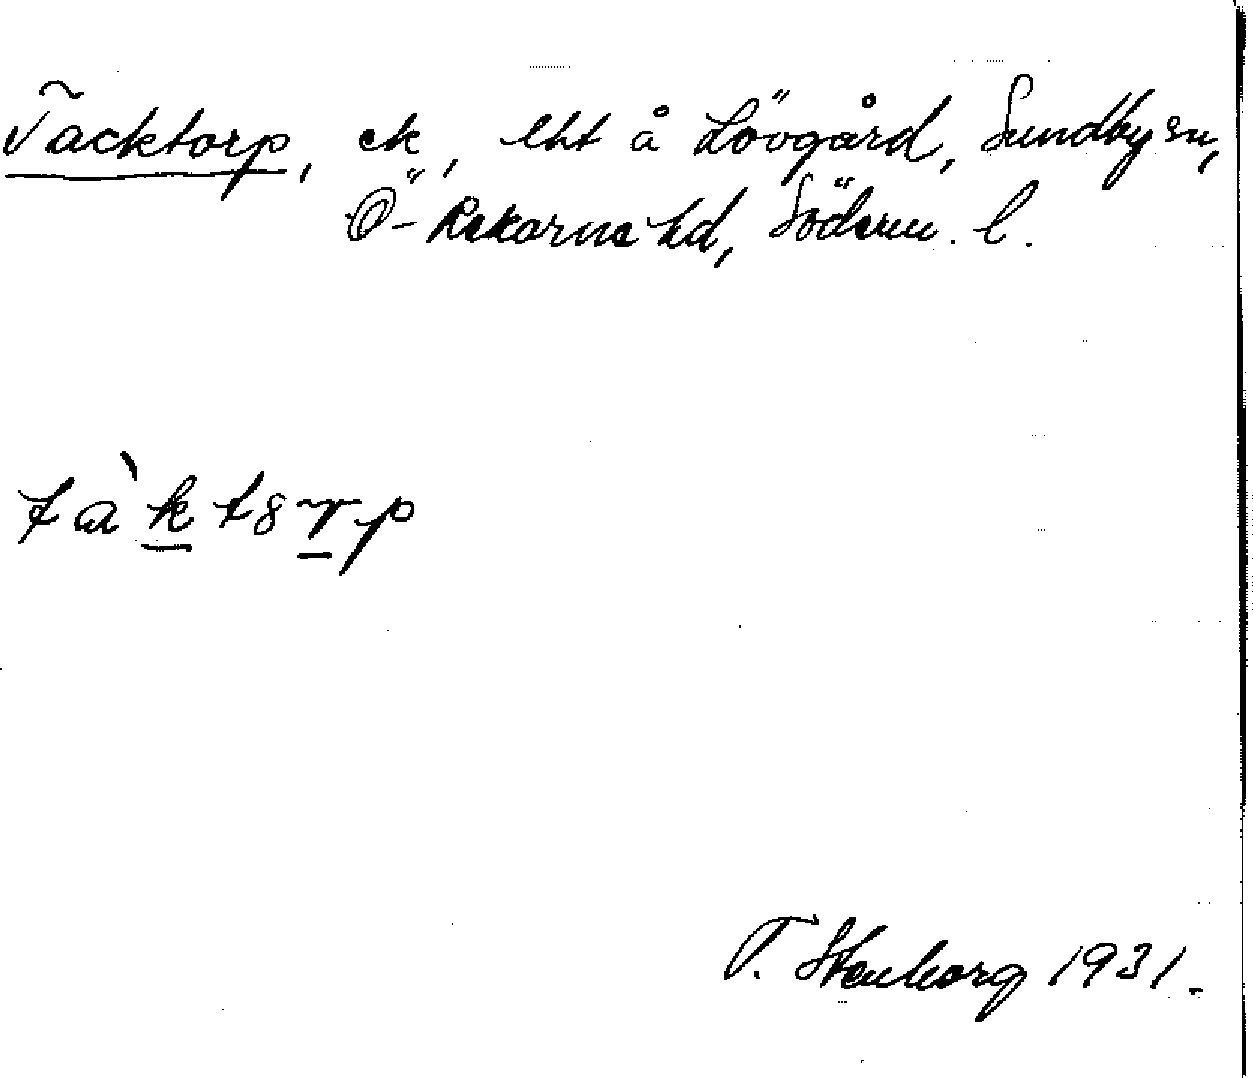 Tacktorp, ek, lht å Lövgård, Sundby sn,
Ö-Rekarne hd, Söderm. l.
tàktɷrp
T. Stenborg 1931.